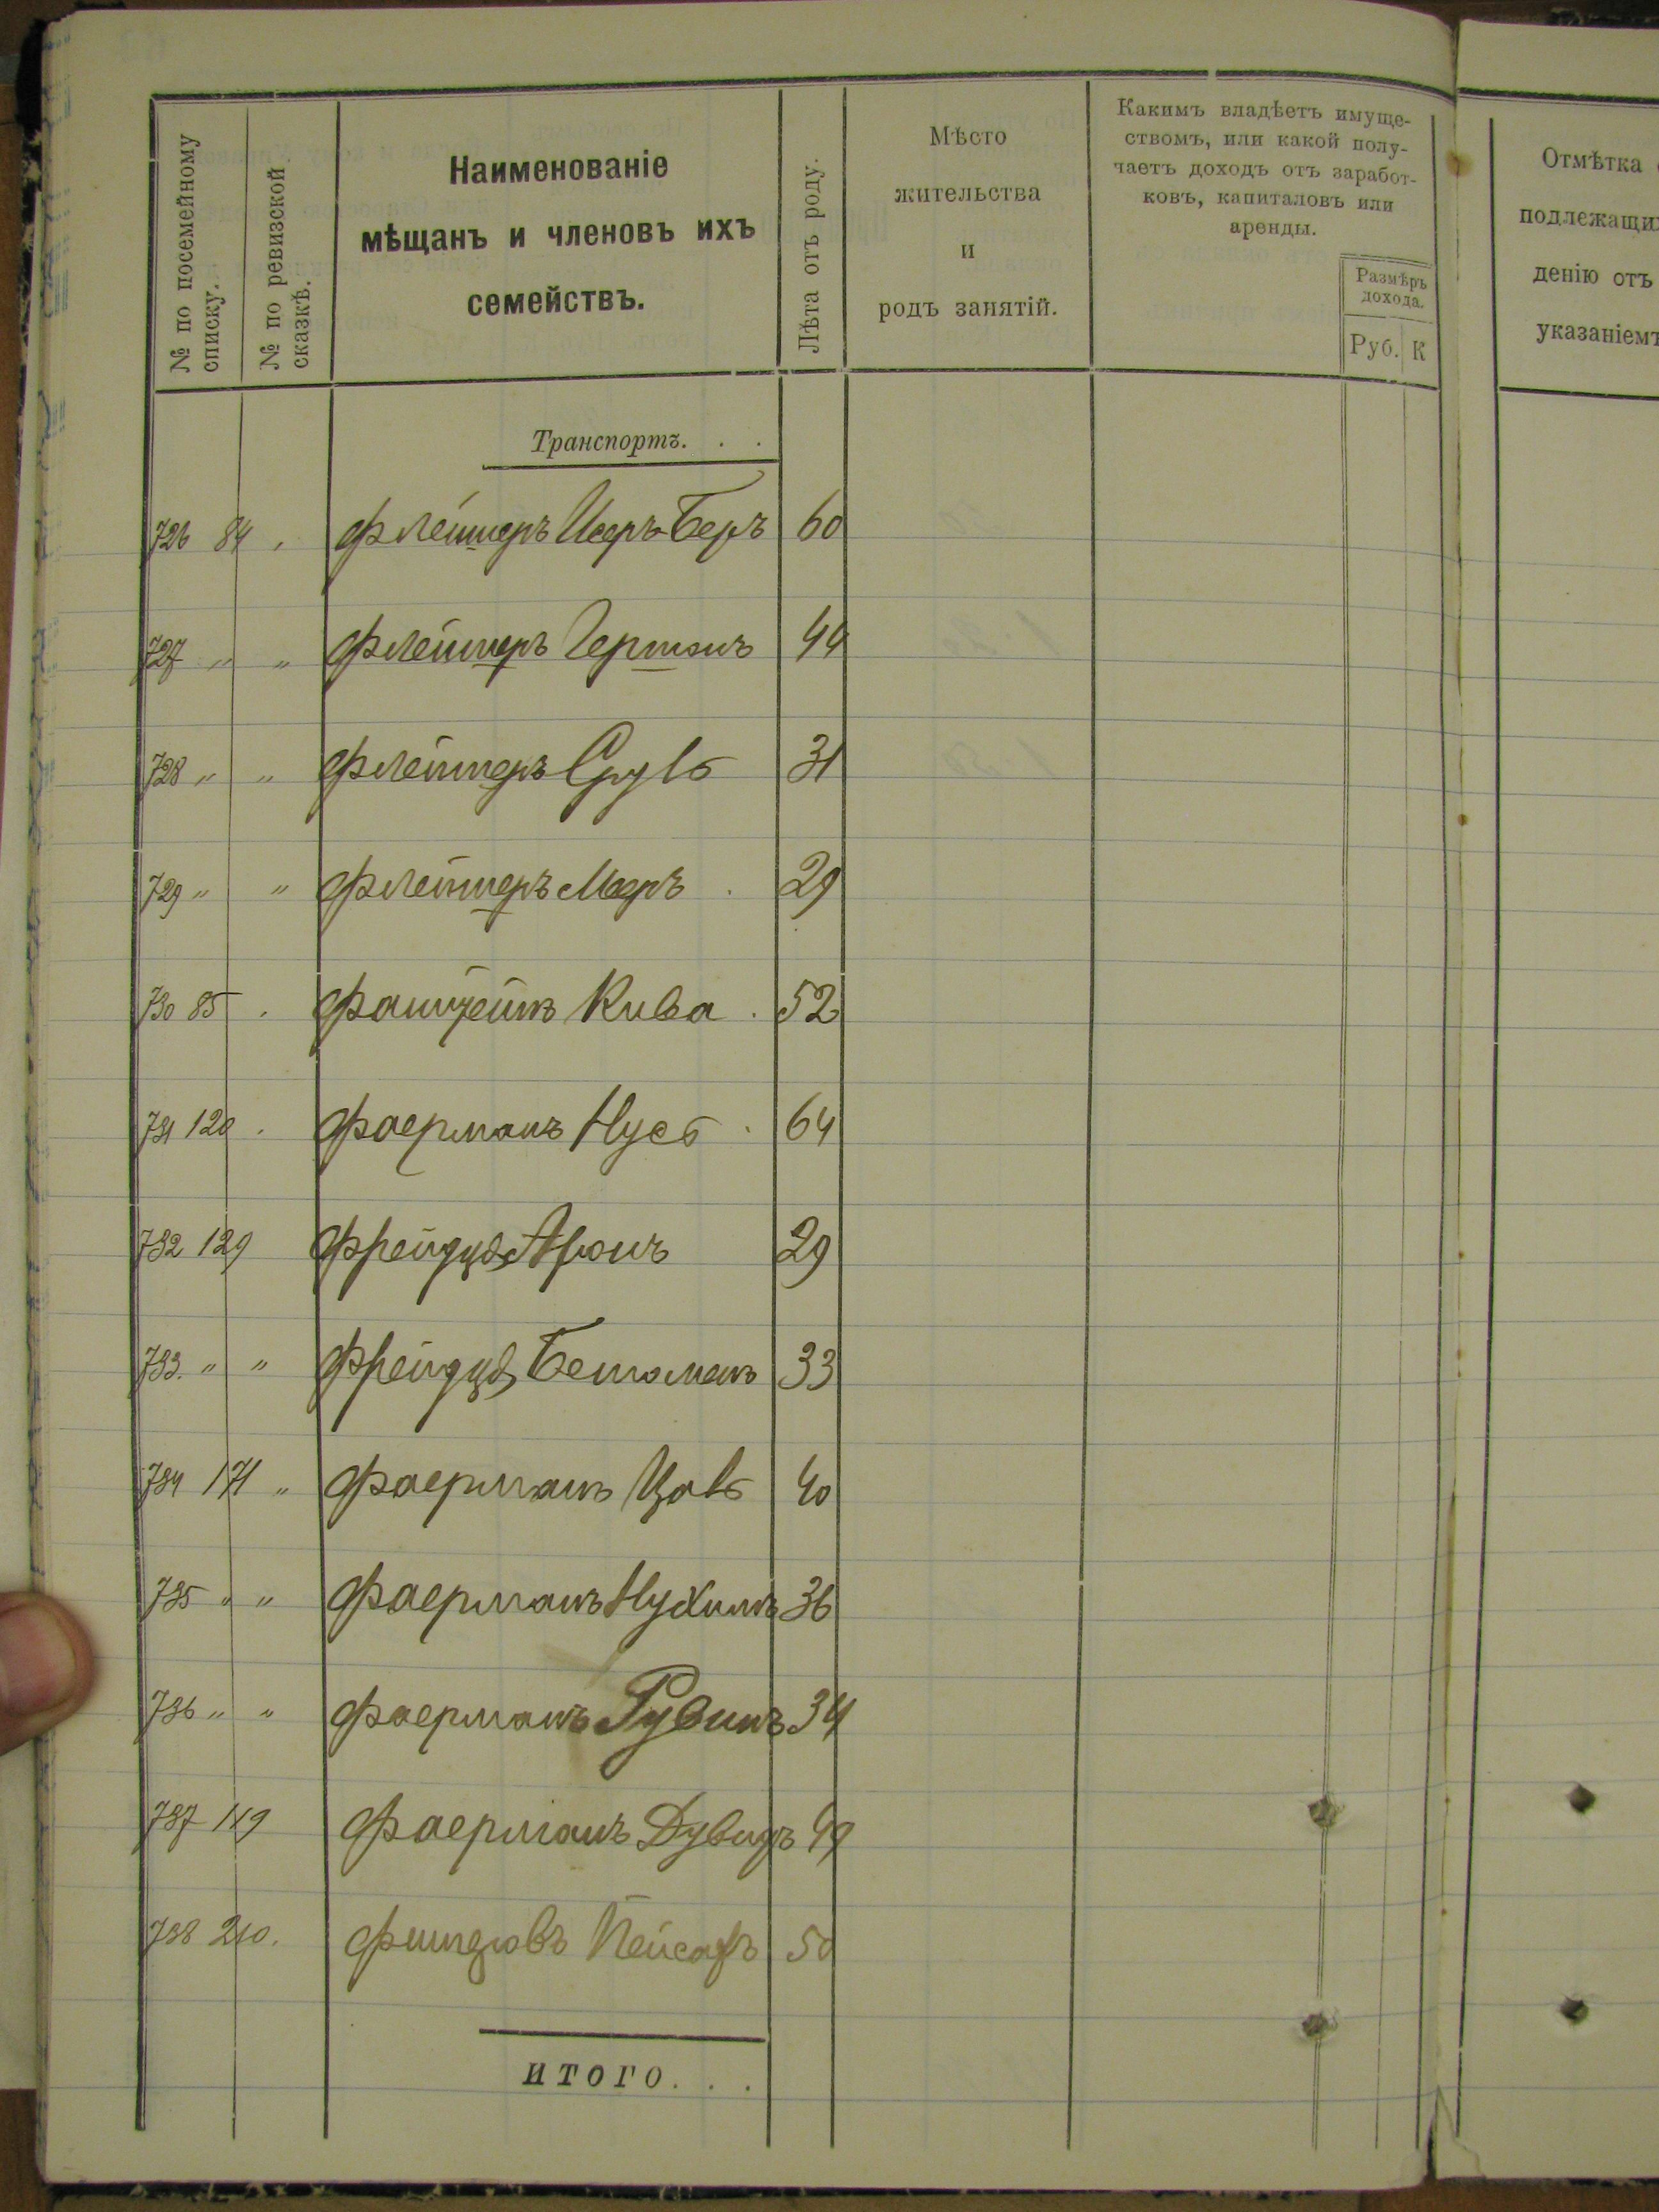 № по посемейному списку.
№ по ревизской сказкѣ.
Наименованіе
мѣщанъ и членовъ ихъ
семействъ.
Лѣта отъ роду.
Мѣсто
жительства
и
родъ занятій.
Какимъ владѣетъ имуще-
ствомъ, или какой полу-
чаетъ доходъ отъ заработ-
ковъ, капиталовъ или
аренды.
Размѣръ
дохода.
Руб. К
Отмѣтка
подлежащи
денію отъ
указаніемъ
Транспортъ. . .
726 84 Флейшеръ Беръ 60
727 " " Флейшеръ Гершонъ 44
728 " " Флейшеръ Сруль 31
729 " " Флейшеръ Мееръ 29
730 85 Кива 52
731 120 Фаерманъ Нусь 64
732 129 Аронъ 29
733 " " 33
734 171 " Фаерманъ 40
735 " " Фаерманъ Нухимъ 36
736 " " Фаерманъ Рувинъ 34
737 Фаерманъ Дувидъ 49
738 210. Пейсахъ 50
итого. . .